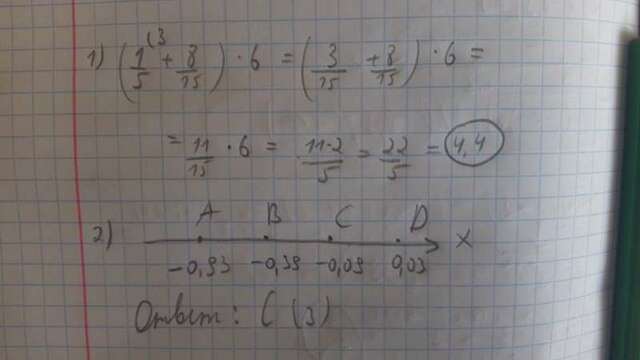 1) (1/5 (3 + 8/15) · 6 = (3/15 + 8/15) · 6 =
= 11/15 · 6 = 11·2/5 = 22/5 = 4,4
2) A B C D x
-0,93 -0,39 -0,09 0,03
Ответ: C (3)